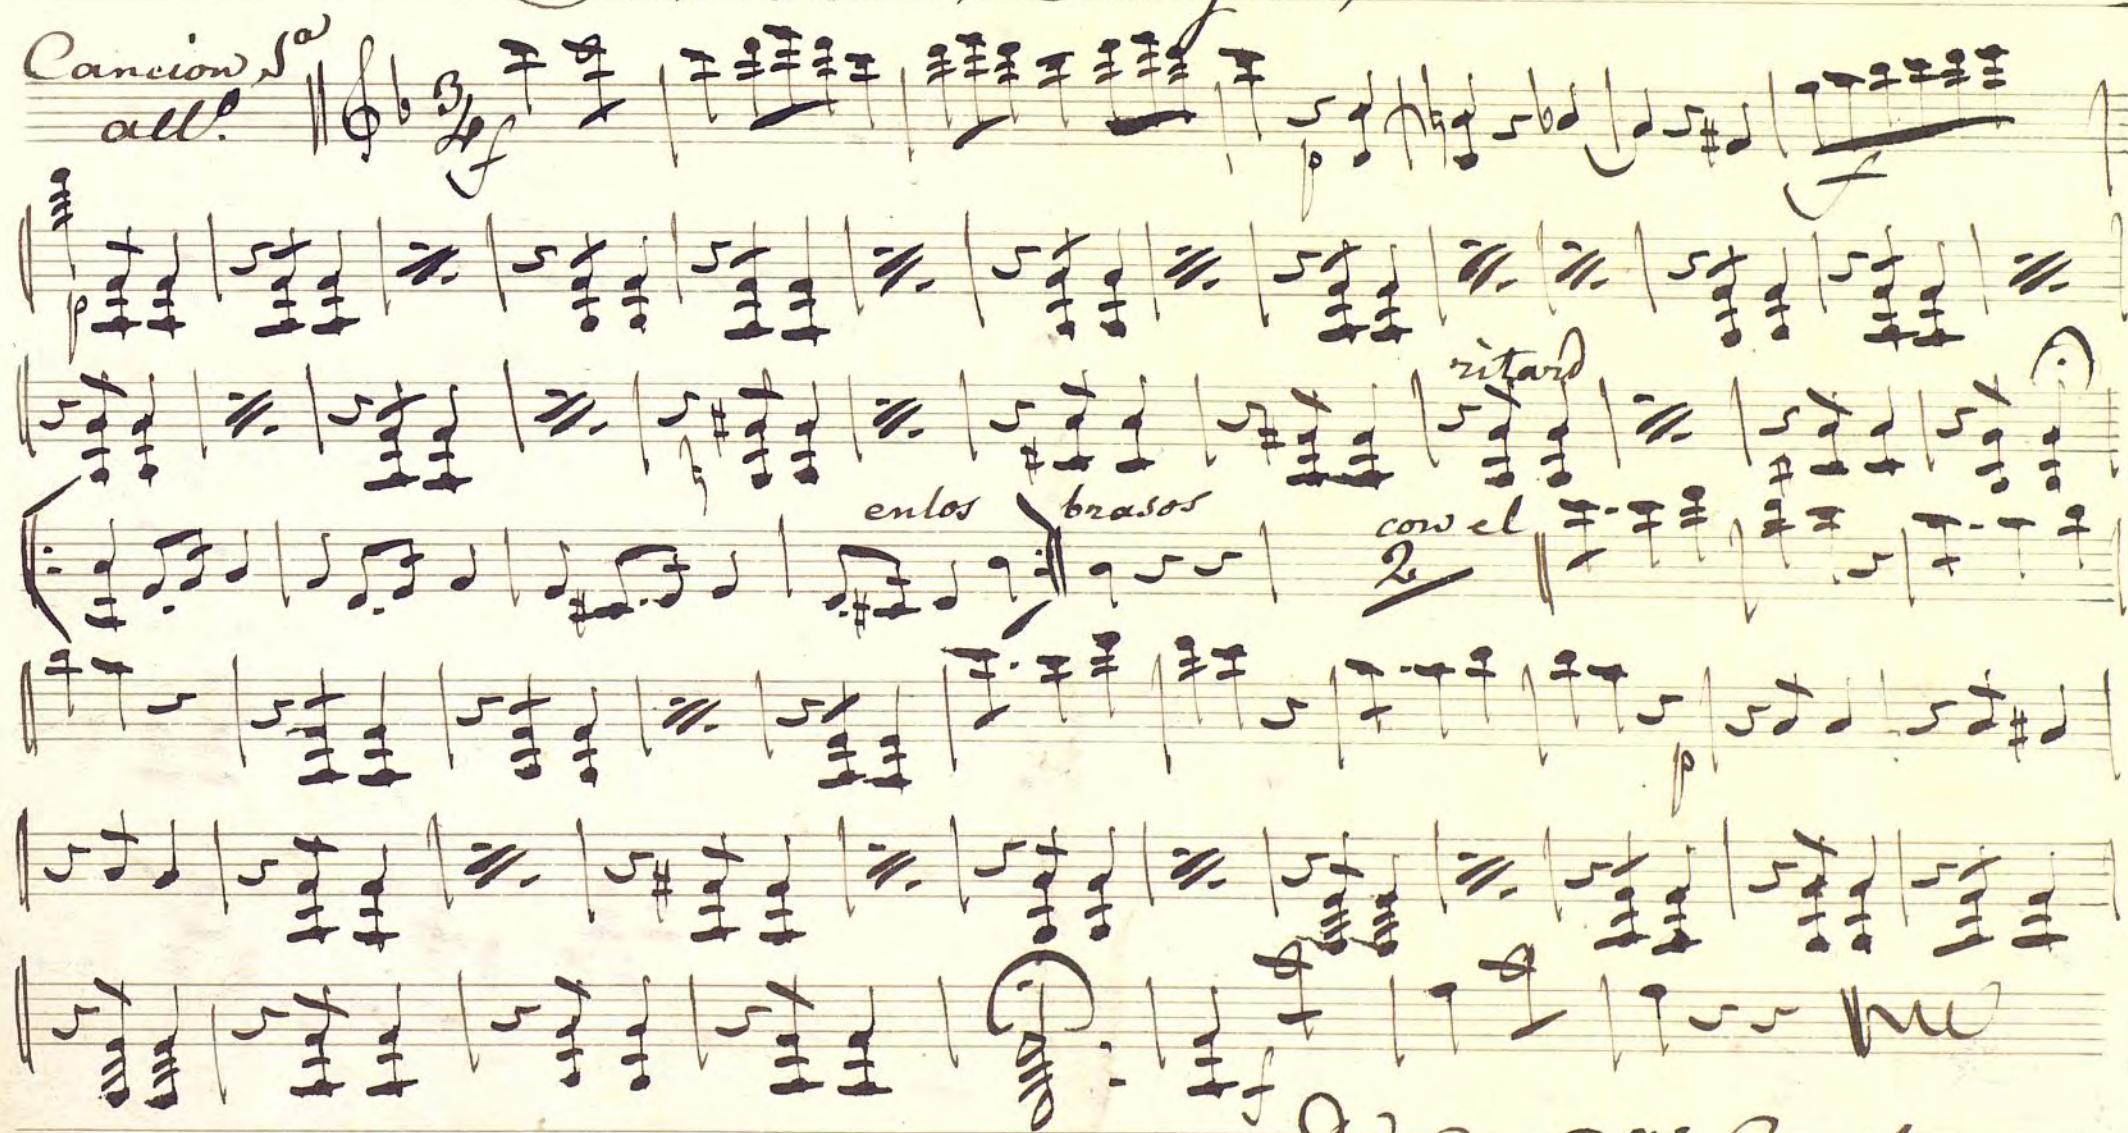 Cancion 5ª
all.º
3/4
f
p
f
p
ritard
en los brasos
con el
2
p
f